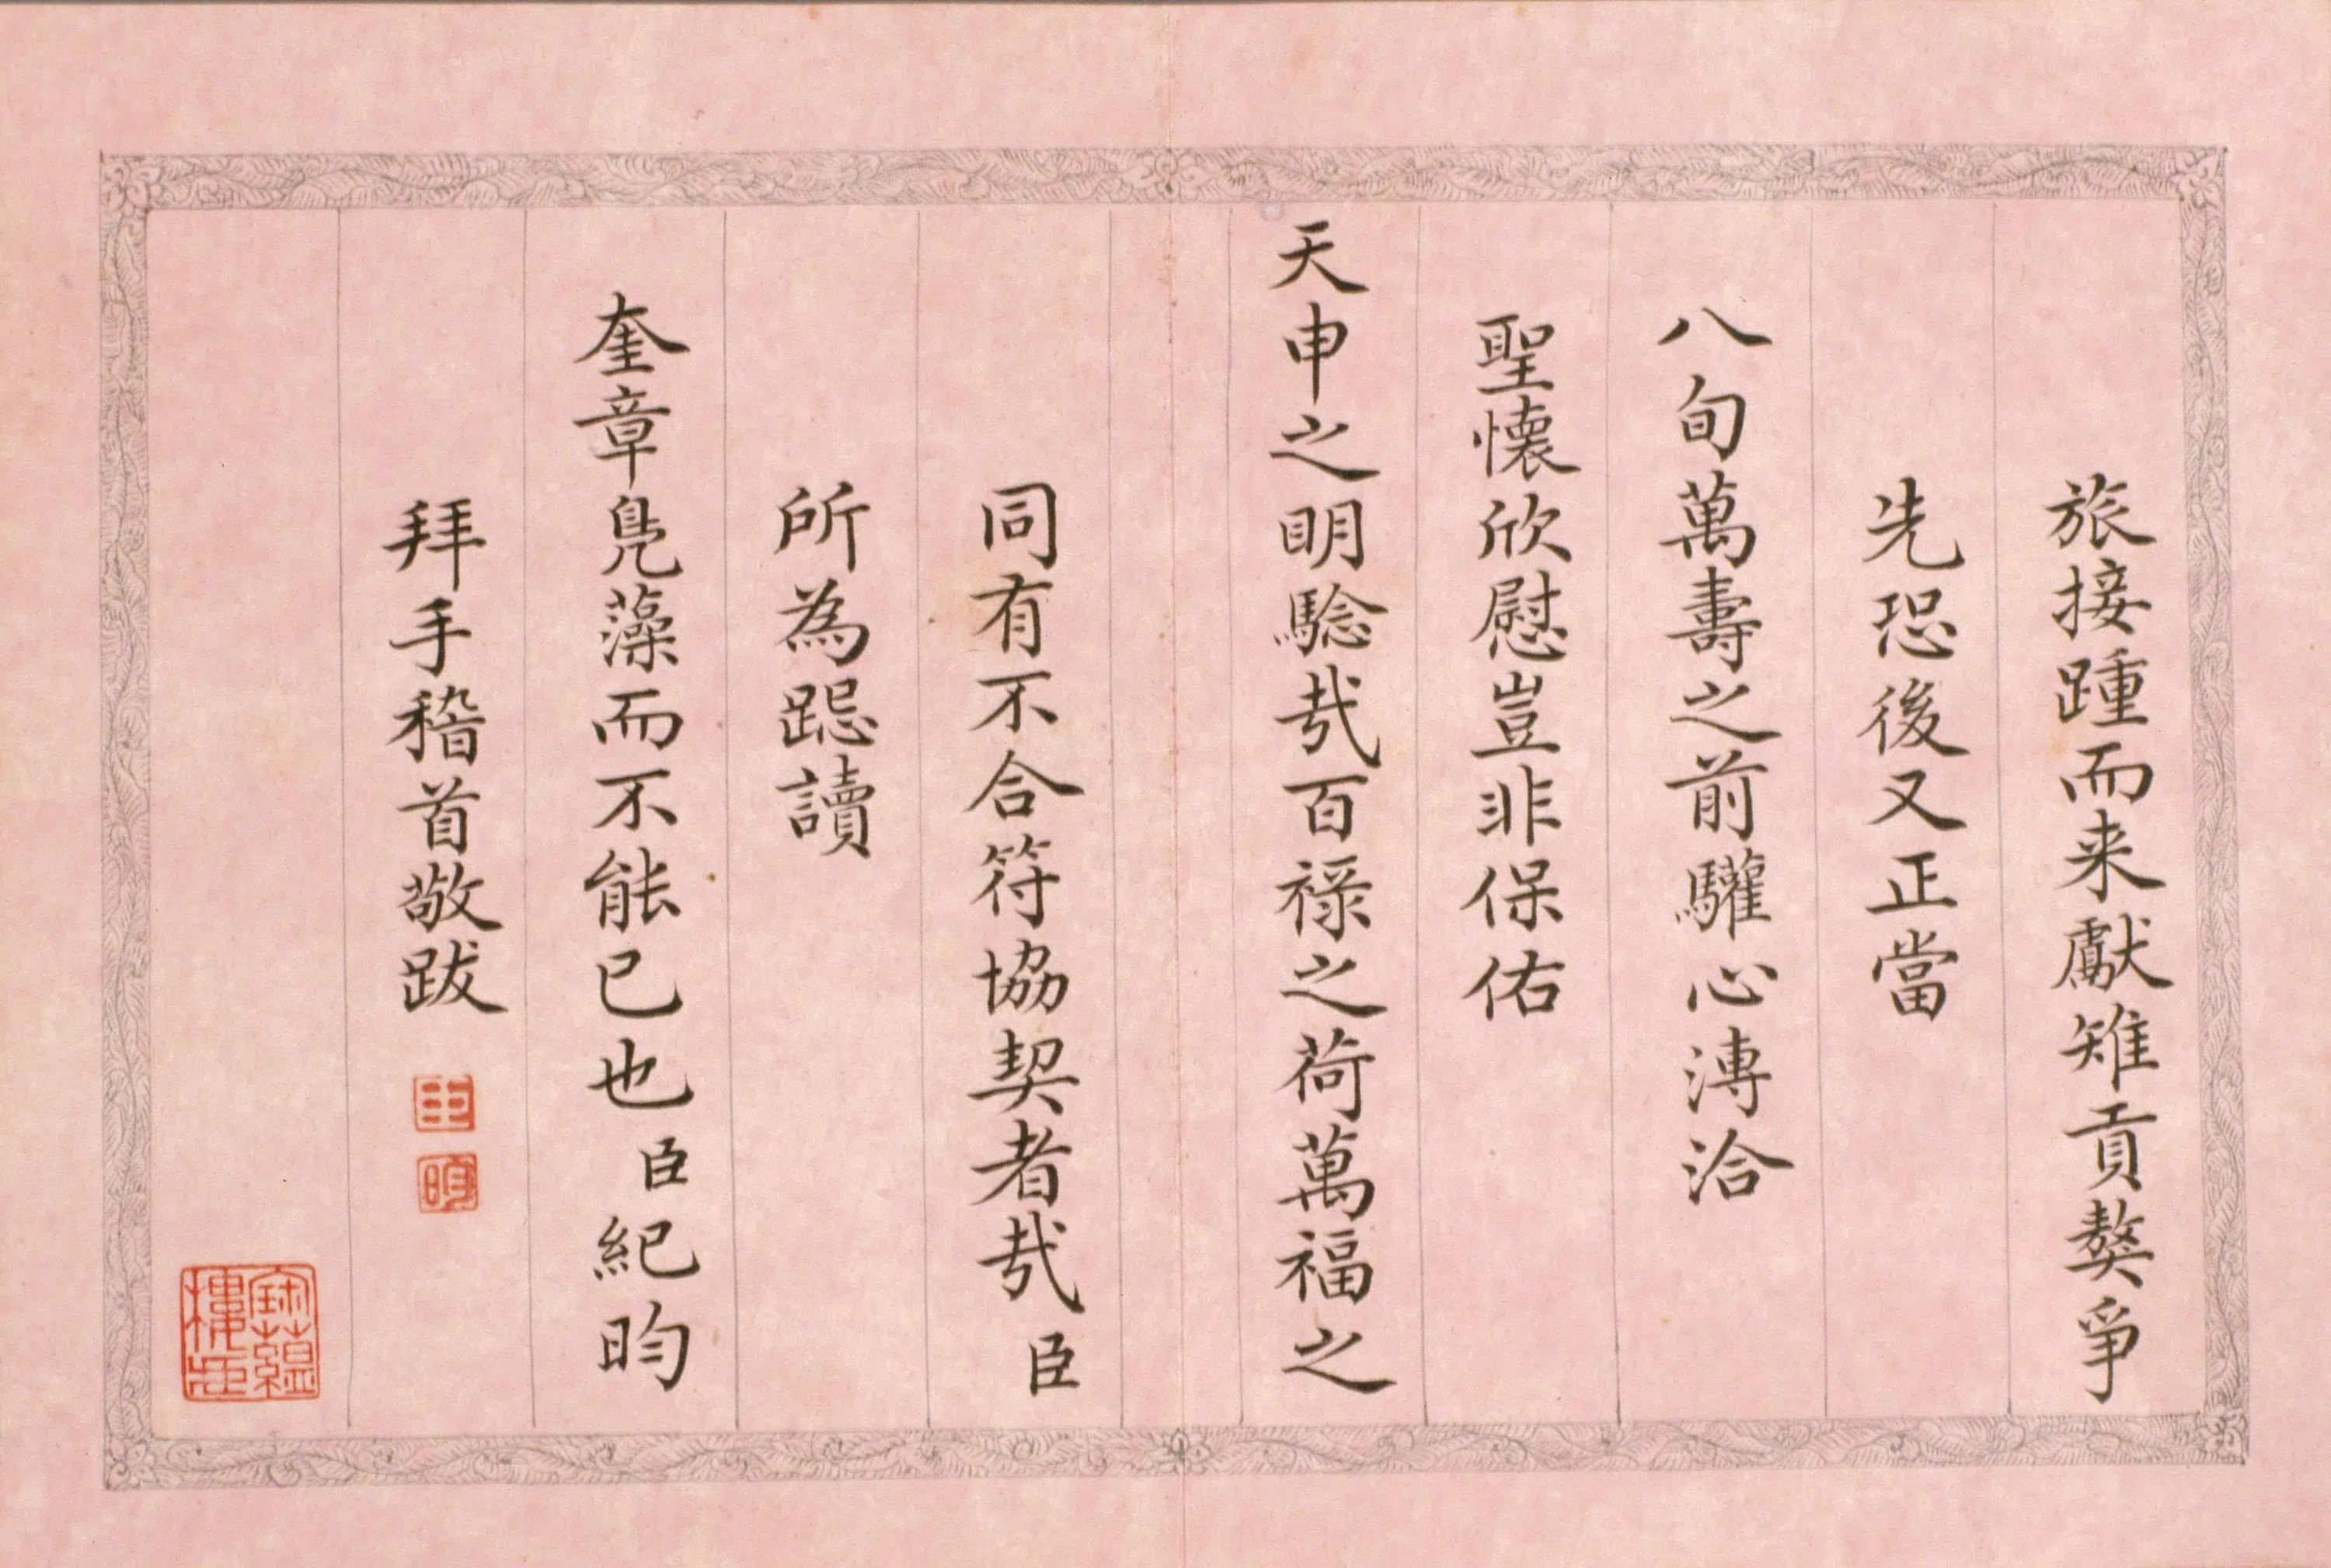 旅接踵而来獻雉貢獒爭
先恐後又正當
八旬萬壽之前驩心溥洽
聖懷欣慰豈非保佑
天申之明騐哉百祿之荷萬福之
同有不合符協契者哉臣
所為跽讀
奎章鳧藻而不能已也臣紀昀
拜手稽首敬跋
臣
昀